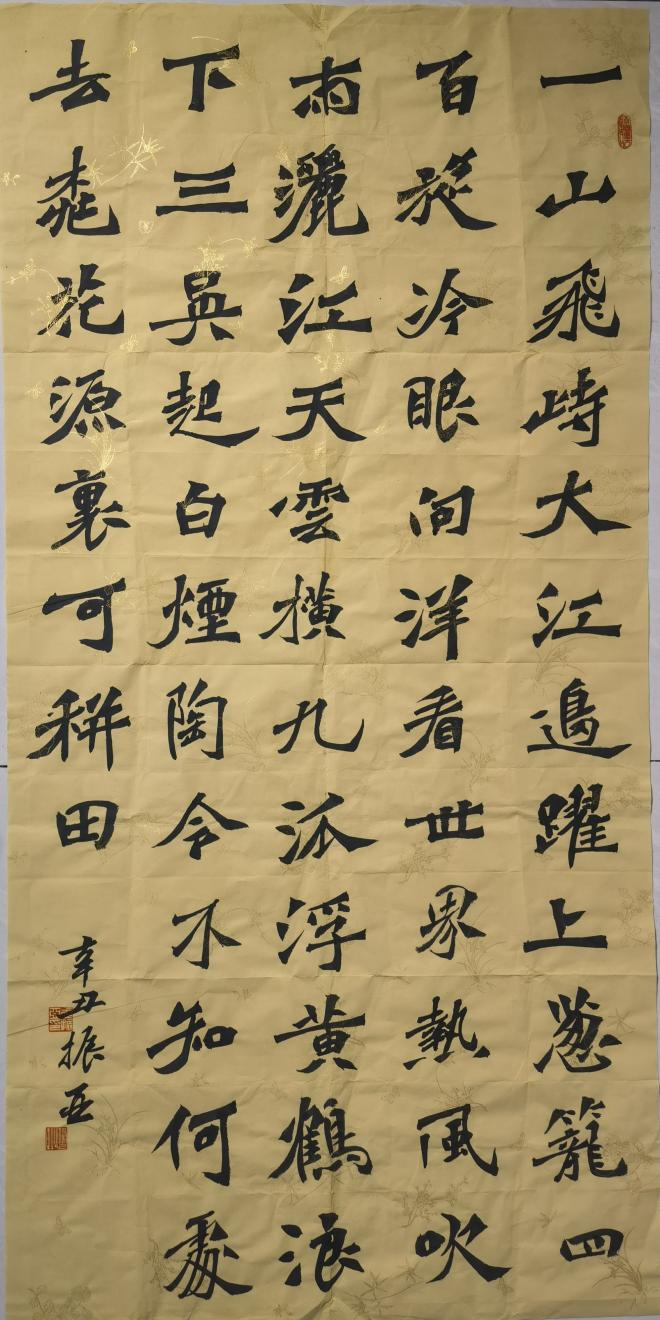 一山飛峙大江邊躍上葱籠四
百旋冷眼向洋看世界熱風吹
雨灑江天雲橫九派浮黃鶴浪
下三吳起白煙陶令不知何處
去桃花源裏可耕田
辛丑振亚